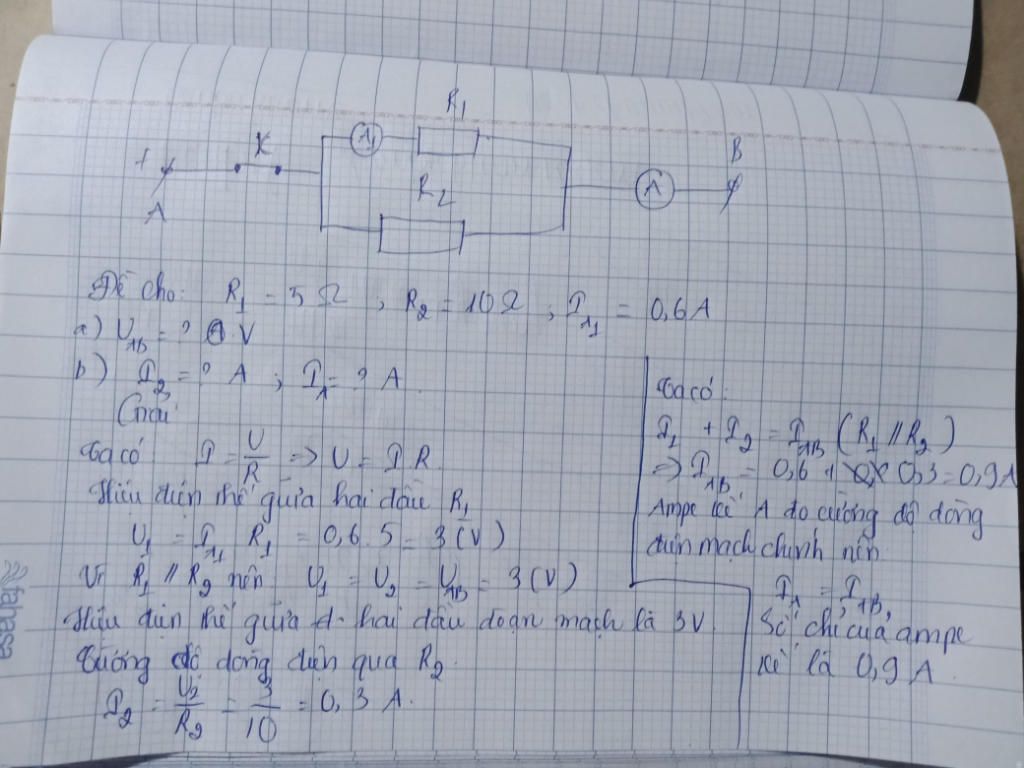 R1
K
A1
+
A
R2
A
B
Đề cho: R1 = 5 Ω , R2 = 10 Ω ; IA1 = 0,6 A
a) UAB = ? V
b) I2 = ? A ; IA = ? A.
Giải
Ta có I = U/R => U = I R
Hiệu điện thế giữa hai đầu R1
U1 = IA1 R1 = 0,6 . 5 = 3 (V)
Vì R1 // R2 nên U1 = U2 = UAB = 3 (V)
Hiệu điện thế giữa hai đầu đoạn mạch là 3V
Cường độ dòng điện qua R2.
I2 = U2/R2 = 3/10 = 0,3 A.
Ta có:
I1 + I2 = IAB (R1 // R2)
=> IAB = 0,6 + 0,3 = 0,9A
Ampe kế A đo cường độ dòng
điện mạch chính nên
IA = IAB,
Số chỉ của ampe
kế là 0,9 A.
fahasa